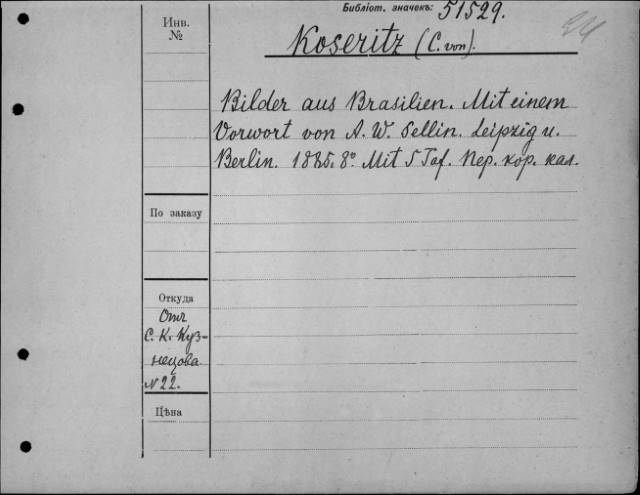 Библіот. значекъ: 51529.
Инв.
№
Koseritz (C. von).
Bilder aus Brasilien. Mit einem
Vorwort von A. W. Sellin. Leipzig u.
Berlin. 1885. 8° Mit 5 Taf. Пер. кор. кал.
По заказу
Откуда
Отъ
С. К. Куз-
нецова
№ 22.
Цѣна